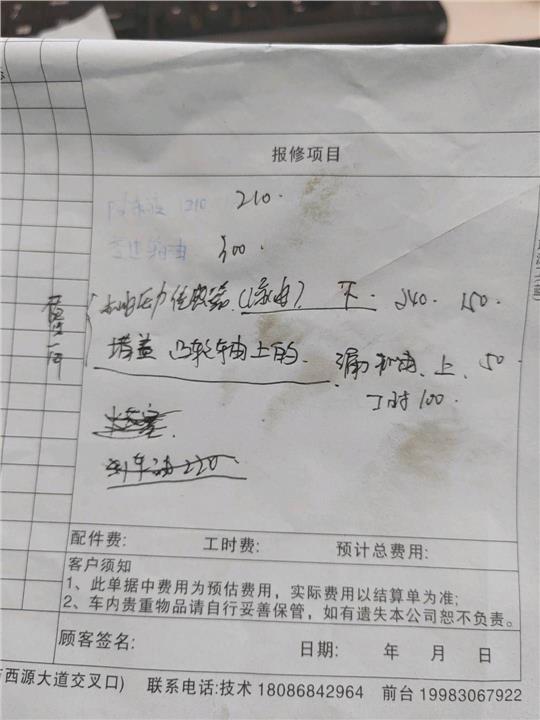 报修项目
防冻液 210 210.
变速箱油 300.
机油压力传感器(漏油). 下. 240. 150.
堵盖 凸轮轴上的. 漏机油. 上. 50.
工时 100.
刹车油 220
配件费: 工时费: 预计总费用:
客户须知
1、此单据中费用为预估费用，实际费用以结算单为准;
2、车内贵重物品请自行妥善保管，如有遗失本公司恕不负责。
顾客签名: 日期: 年 月 日
西源大道交叉口) 联系电话:技术 18086842964 前台 19983067922